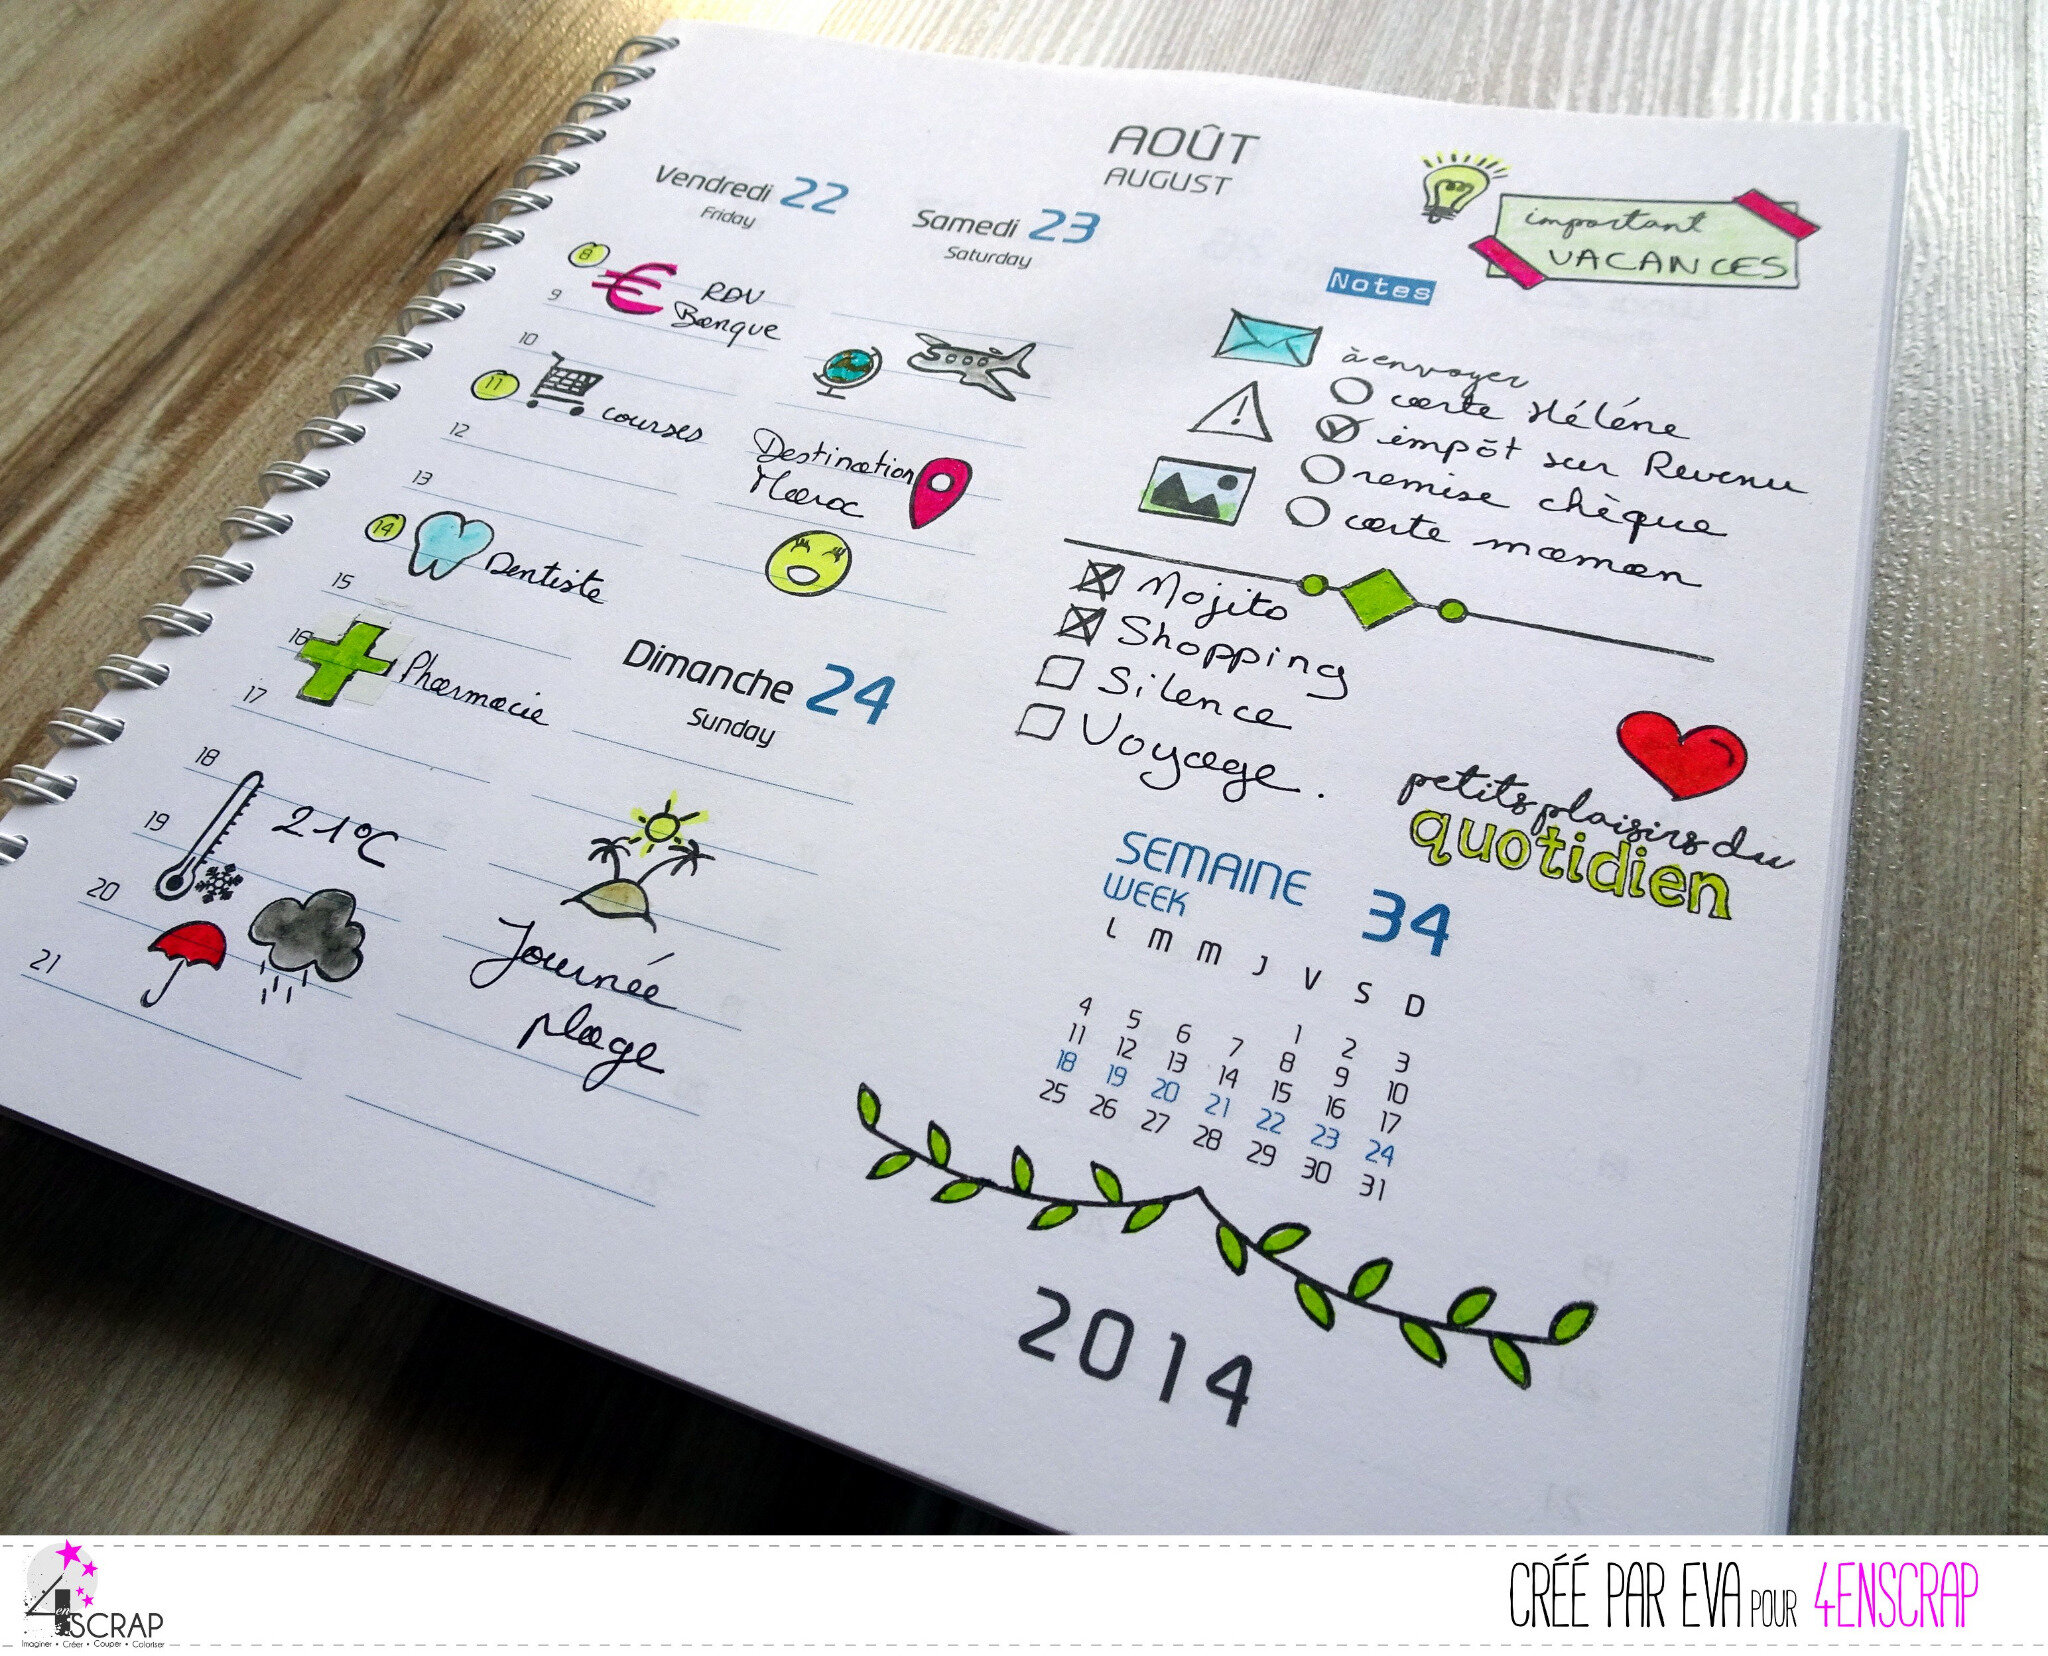 AOÛT
AUGUST
Vendredi 22
Friday
8
RDV
Banque
9
10
11
courses
12
13
14
Dentiste
15
16
Pharmacie
17
18
21°C
19
20
21
Samedi 23
Saturday
Destination
Maroc
Dimanche 24
Sunday
Journée
plage
important
VACANCES
Notes
à envoyer
carte Hélène
impôt sur Revenu
remise chèque
carte maman
Mojito
Shopping
Silence
Voyage.
petits plaisirs du
quotidien
SEMAINE 34
WEEK
L M M J V S D
1 2 3
4 5 6 7 8 9 10
11 12 13 14 15 16 17
18 19 20 21 22 23 24
25 26 27 28 29 30 31
2014
4enSCRAP
Imaginer • Créer • Couper • Coloriser
CRÉÉ PAR EVA POUR 4ENSCRAP